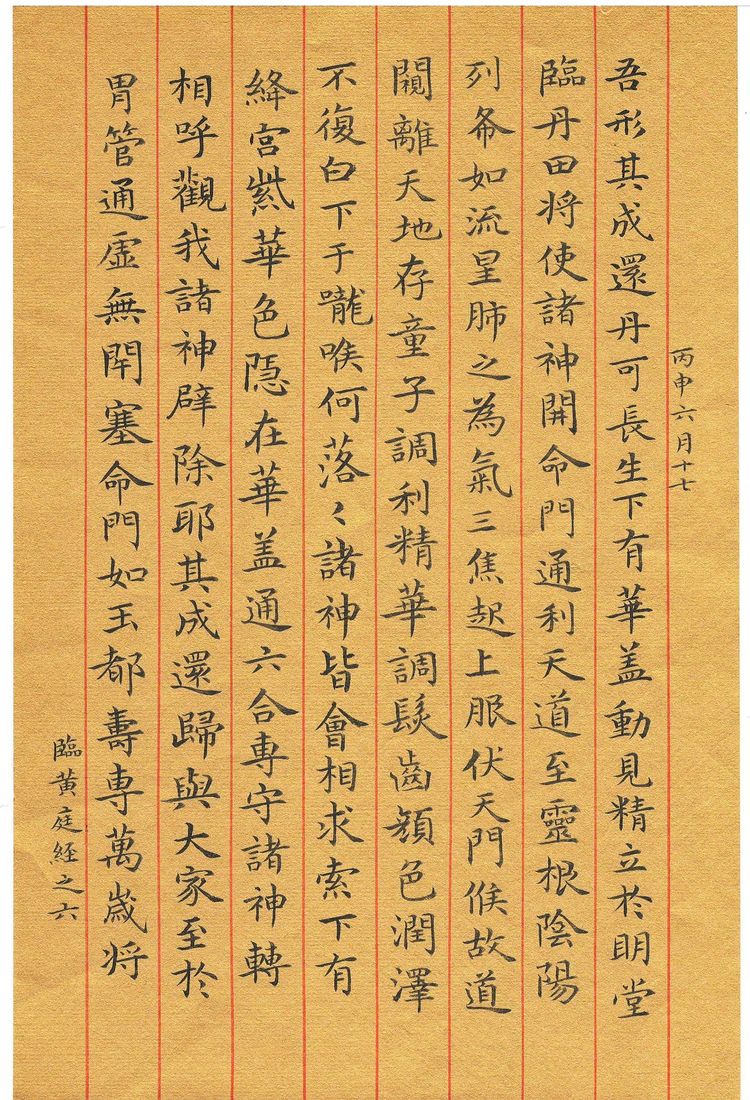 丙申六月十七
吾形其成還丹可長生下有華盖動見精立於明堂
臨丹田将使諸神開命門通利天道至靈根陰陽
列布如流星肺之為氣三焦起上服伏天門候故道
闚離天地存童子調利精華調髮齒顔色潤澤
不復白下于嚨喉何落〻諸神皆會相求索下有
絳宫紫華色隐在華盖通六合専守諸神轉
相呼觀我諸神辟除耶其成還歸與大家至於
胃管通虚無閇塞命門如玉都壽専萬歳将
臨黄庭経之六